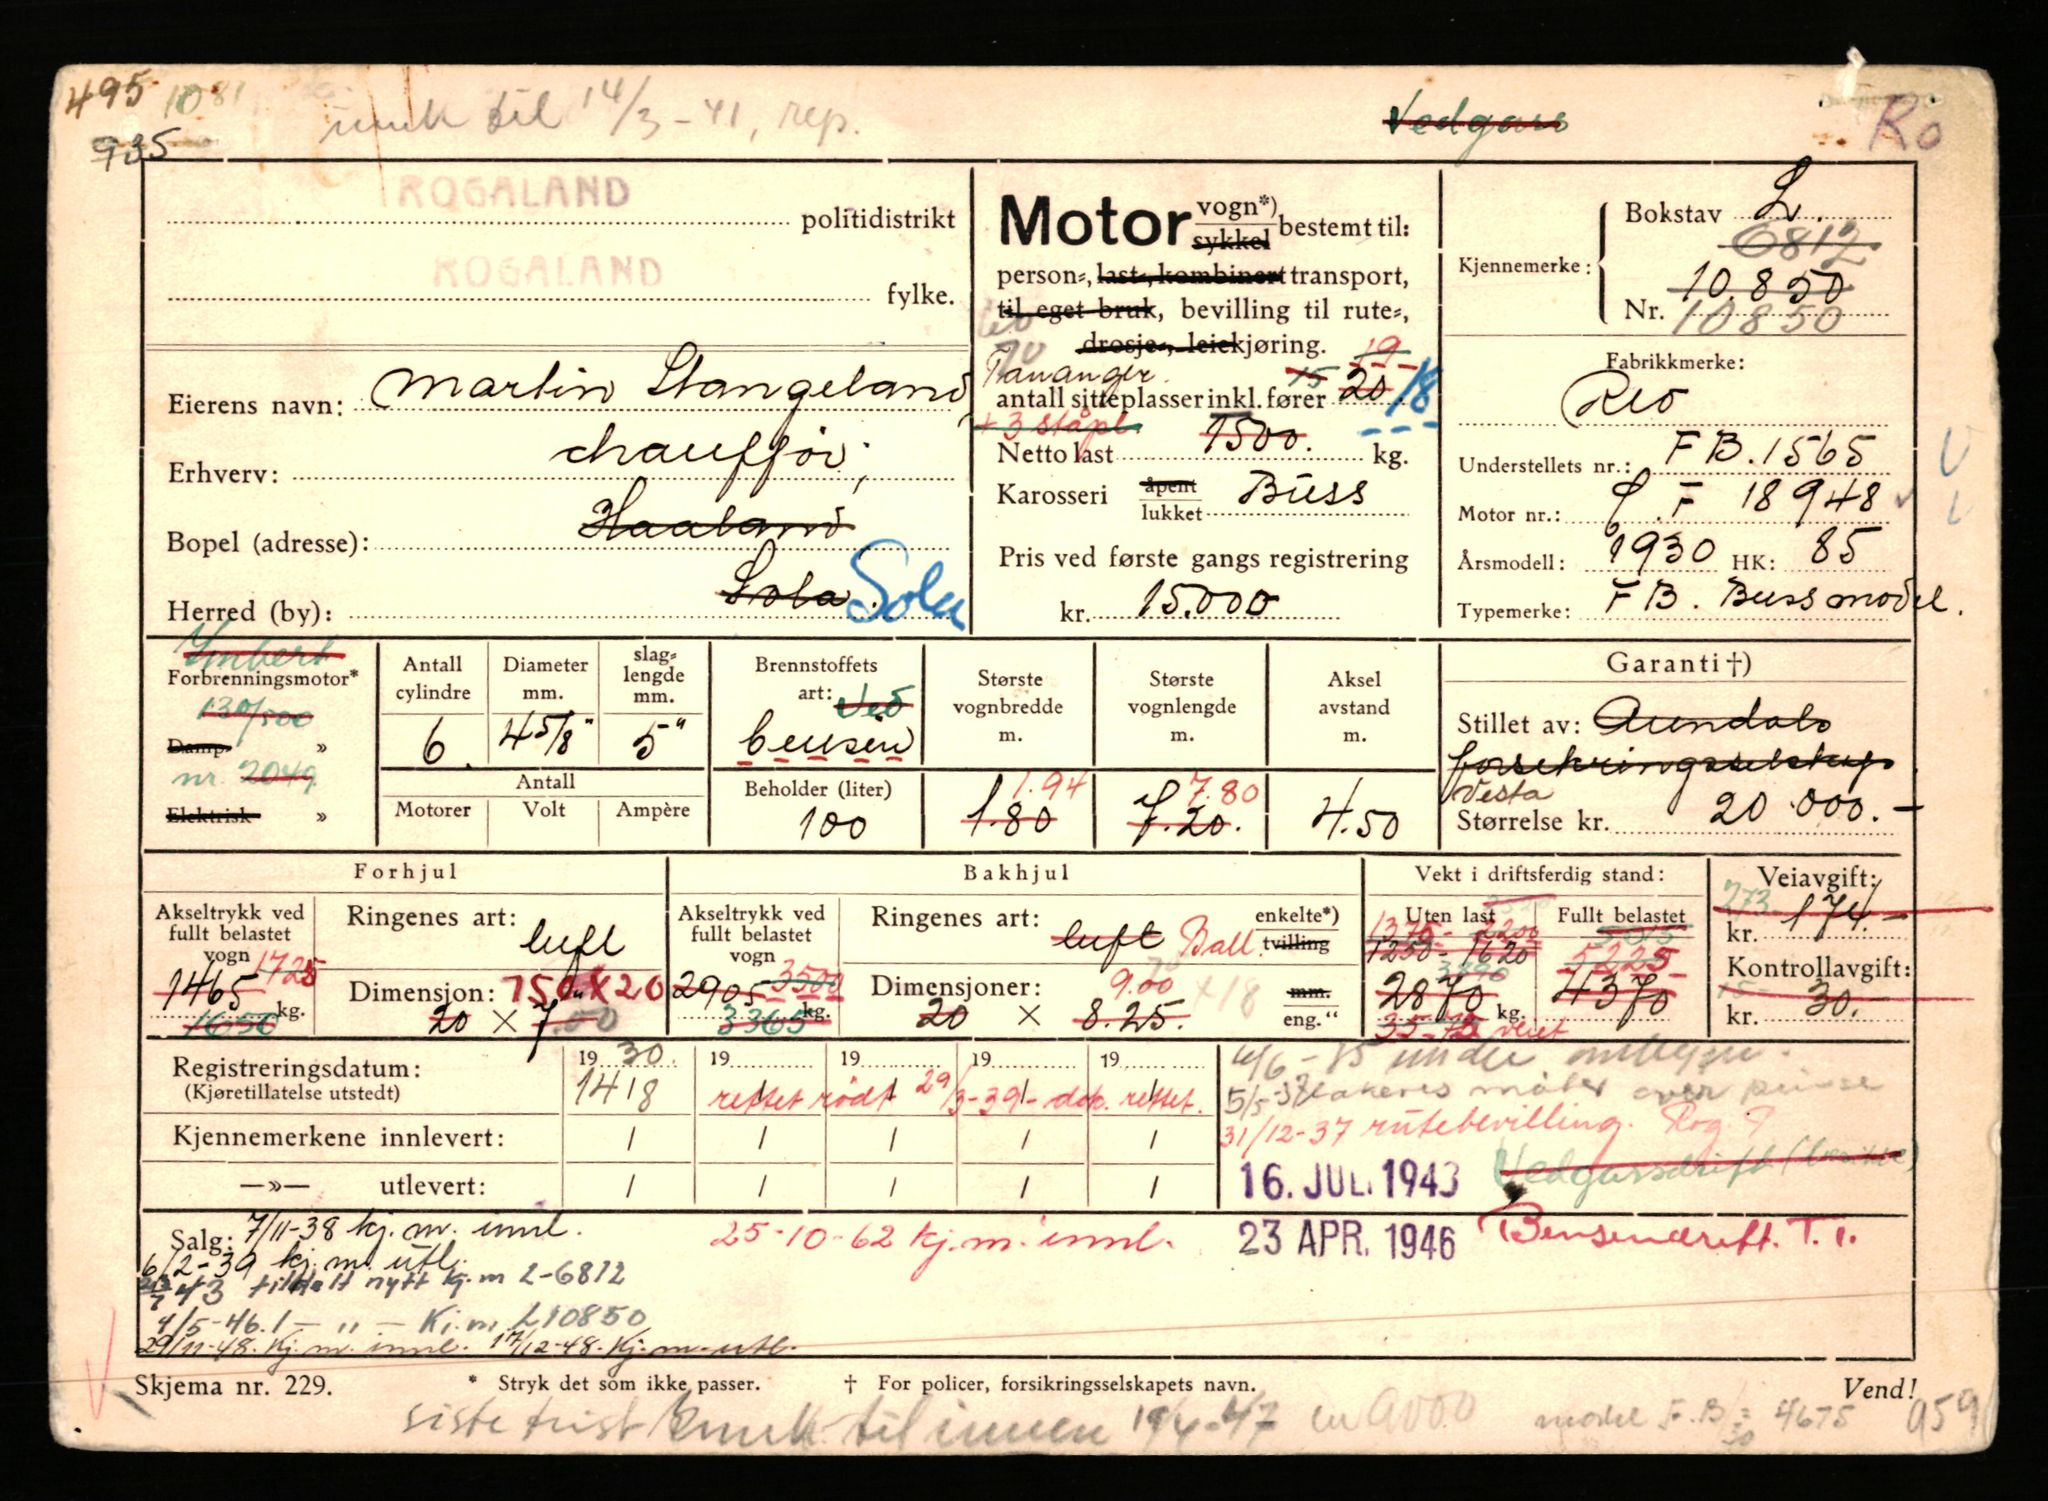 495 1081
935
til 14/3-41, rep.
Vedgass
Ro
ROGALAND
politidistrikt
ROGALAND
fylke.
Eierens navn: Martin Stangeland
Erhverv: chauffør,
Bopel (adresse): Haaland
Herred (by): Sola. Sola
Motor vogn*) sykkel bestemt til:
person-, last-, kombinert transport,
til eget bruk, bevilling til rute-,
drosje-, leiekjøring. 19
Tananger.
antall sitteplasser inkl. fører 15 20 18
+ 3 ståpl.
Netto last 1500. kg.
Karosseri åpent lukket Buss
Pris ved første gangs registrering
kr. 15.000
Bokstav L.
6812
Kjennemerke: 10.850
Nr. 10850
Fabrikkmerke:
Reo
Understellets nr.: F B. 1565
Motor nr.: F 18948
Årsmodell: 1930 HK: 85
Typemerke: F B. Bussmodel.
Imbert
Forbrenningsmotor*
130/500
Damp- »
nr. 2049
Elektrisk »
Antall cylindre
6
Diameter mm.
4 5/8"
slag-lengde mm.
5"
Antall
Motorer Volt Ampère
Brennstoffets art: Ved
bensin
Beholder (liter)
100
Største vognbredde m.
1.94
1.80
Største vognlengde m.
7.80
7.20.
Aksel avstand m.
4.50
Garanti †)
Stillet av: Arendals
forsikringsselskap
Vesta
Størrelse kr. 20.000.-
Forhjul
Akseltrykk ved fullt belastet vogn
1725
1465 kg.
1650
Ringenes art: luft
Dimensjon: 750 X 20
20 × 7.00
Bakhjul
Akseltrykk ved fullt belastet vogn
3500
2905 kg.
3365
Ringenes art: luft Ball. enkelte*) tvilling
Dimensjoner: 9.00
20 × 8.25. mm. eng."
Vekt i driftsferdig stand:
Uten last
1375 - 2200
1250 - 1620
2870 kg.
3575
Fullt belastet
5225
4370
Veiavgift:
273.
kr. 174.-
Kontrollavgift:
kr. 30.-
Registreringsdatum: 19 30. 19 19 19 19
(Kjøretillatelse utstedt) 14/8 rettet rødt 29/3-39 - dok. rettet.
Kjennemerkene innlevert: / / / / /
—»— utlevert: / / / / /
5/5-37 over
31/12-37 rutebevilling. Rog.
16. JUL. 1943 Vedgassdrift
23 APR. 1946 Bensindrift. T.T.
Salg: 7/11-38 kj. m. innl. 25-10-62 kj. m. innl.
6/2-39 kj. m. utl.
43 tildelt nytt kj. m L-6812
4/5-46. 1 - " - Kj. m. L10850
29/11-48. Kj. m. innl. 17/12-48. Kj. m. utl.
Skjema nr. 229. * Stryk det som ikke passer. † For policer, forsikringsselskapets navn. Vend!
siste frist til innen 47 9000 model F.B. 4675 959